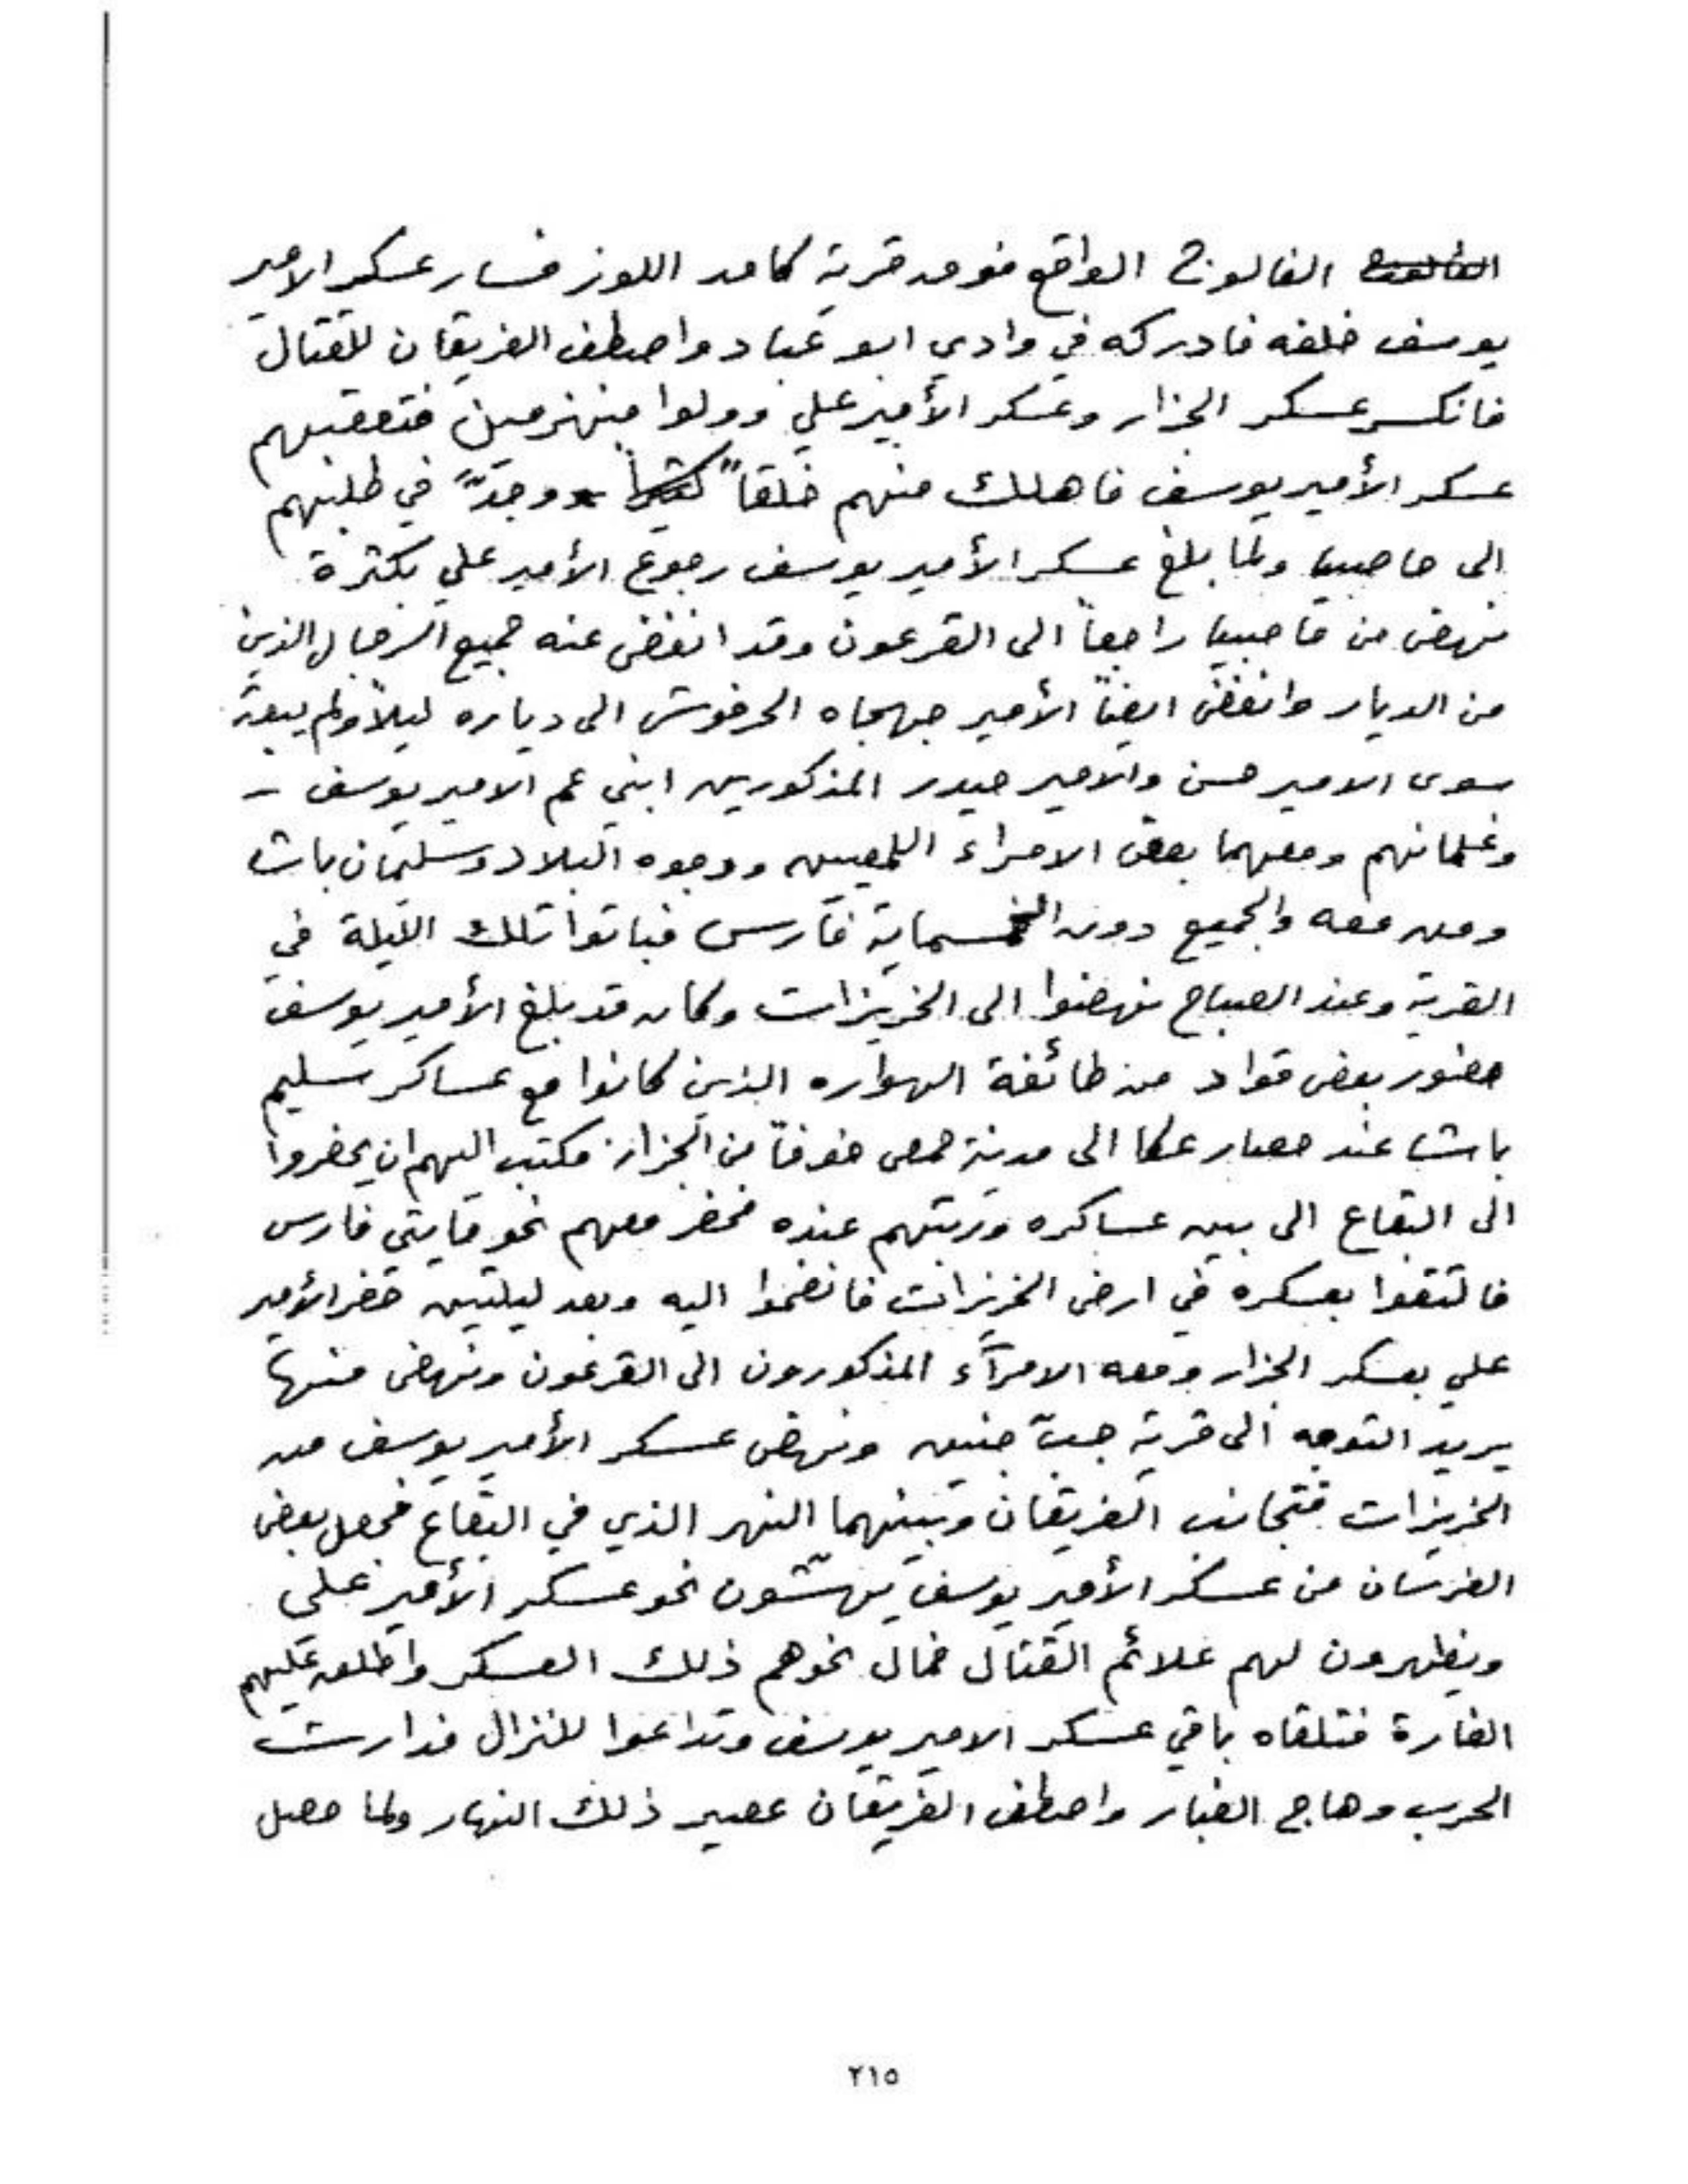 الفالوج الواقع فوق قرية كامد اللوز فسار عسكر الامير
يوسف خلفه فادركه في وادي ابو عباد واصطف الفريقان للقتال
فانكسر عسكر الجزار وعسكر الأمير علي وولوا منهزمين فتعقبهم
عسكر الأمير يوسف فاهلك منهم خلقاً وجدّ في طلبهم
الى حاصبيا ولما بلغ عسكر الأمير يوسف رجوع الأمير علي بكثرة
نهض من حاصبيا راجعاً الى القرعون وقد انفض عنه جميع الرجال الذين
من الديار وانفضّ ايضاً الأمير جهجاه الحرفوش الى دياره ليلاً ولم يبقَ
سوى الامير حسن والامير حيدر المذكورين ابني عم الامير يوسف -
وغلمانهم ومعهما بعض الامراء اللمعيين ووجوه البلاد وسليمان باشا
ومن معه والجميع دون الخمسماية فارس فباتوا تلك الليلة في
القرية وعند الصباح نهضوا الى الخريزات وكان قد بلغ الأمير يوسف
حضور بعض قواد من طائفة الهواره الذين كانوا مع عساكر سليم
باشا عند حصار عكا الى مدينة حمص خوفاً من الجزار فكتب اليهم ان يحضروا
الى البقاع الى بين عساكره ورتبتهم عنده فحضر معهم نحو مايتي فارس
فالتقوا بعسكره في ارض الخريزات فانضموا اليه وبعد ليلتين حضر الأمير
علي بعسكر الجزار ومعه الامرآء المذكورون الى القرعون ونهض منها
يريد التوجه الى قرية جبّ جنين ونهض عسكر الأمير يوسف من
الخريزات فتجانب الفريقان وبينهما النهر الذي في البقاع فجعل بعض
الفرسان من عسكر الأمير يوسف يهشّون نحو عسكر الأمير علي
ويظهرون لهم علائم القتال فمال نحوهم ذلك العسكر واطلق عليهم
الغارة فتلقاه باقي عسكر الامير يوسف وتداعوا للنزال فدارت
الحرب وهاج الغبار واصطف الفريقان عصير ذلك النهار ولما حصل
٢١٥